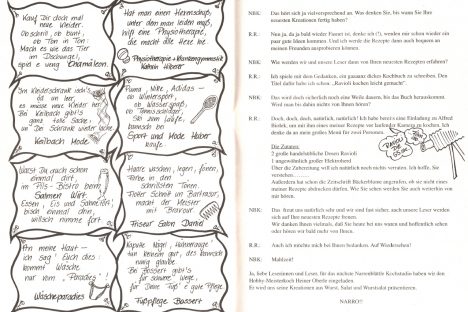 Kauf Dir doch mal
neue Kleider.
Ob schrill, ob bunt,
ob Ton in Ton:
Mach es wie das Tier
im Dschungel,
sei a weng Chamäleon.
Hat man einen Hexenschuß,
unter dem man leiden muß,
hilft eine Physiotherapie,
die macht alle Hexe hie.
Physiotherapie + Krankengymnastik
Im Kleiderschrank
es müsse neue Kleider her
Bei Kaibach gibt's
ganz tolle Sache,
un' Der Schrank wieder
Kaibach Mode
Puma, Nike, Adidas -
ob Wintersport,
ob Wasserspaß,
ob Tennisschläger,
Sport und Mode Huber
Warst Du auch schon
einmal dort,
im Pils-Bistro beim
Salmen Wirt.
Essen, Eis und Sahnetört,
bisch einmal drin,
willsch nimme fort.
Haare waschen, legen, föhnen,
Farbe in den
schrillsten Tönen.
Toller Schnitt un Bartrasur,
macht der Meister
mit Bravour.
Friseur Salon Daniel
An meine Haut -
ich sag' Eich dies:
kommt Wäsche
nur vom "Paradies"
Wäscheparadies
Kaputte Nägel, Hühneraug
Bei Bossert gibt's
für "Deine Füß" e gute Pflege
Fußpflege Bossert
NBK: Das hört sich ja vielversprechend an. Was denken Sie, bis wann Sie Ihre
neuesten Kreationen fertig haben?
R.R.: Nun ja, da ja bald wieder Fasent ist, denke ich, werden mir schon wieder ein
paar gute Ideen kommen. Und ich werde die Rezepte dann auch bequem an
meinen Freunden ausprobieren können.
NBK: Wie werden wir und unsere Leser dann von Ihren neuesten Rezepten erfahren?
R.R.: Ich spiele mit dem Gedanken, ein ganzes dickes Kochbuch zu schreiben. Den
Titel dafür habe ich schon: „Ravioli kochen leicht gemacht".
NBK: Das wird doch sicherlich noch eine Weile dauern, bis das Buch herauskommt.
Wird man bis dahin nichts von Ihnen hören?
R.R.: Doch, doch, doch, natürlich, natürlich! Ich habe bereits eine Einladung zu Alfred
Biolek, um mit ihm eines meiner Rezepte vor laufender Kamera zu kochen. Ich
denke da an mein großes Menü für zwei Personen.
Die Zutaten:
2 große handelsübliche Dosen Ravioli
1 ungewöhnlich großer Elektroherd
Über die Zubereitung will ich natürlich noch nichts verraten. Ich hoffe, Sie
verstehen...
Außerdem hat schon die Zeitschrift angefragt, ob sie nicht eines
meiner Rezepte abdrucken dürfen. Wie Sie sehen werden Sie auch weiterhin von
mir hören.
NBK: Das freut uns natürlich sehr und wir sind fast sicher, auch unsere Leser werden
sich auf Ihre neuesten Rezepte freuen.
Wir danken Ihnen vielmals, daß Sie heute bei uns waren und hoffentlich sehen
oder hören wir bald mehr von Ihnen.
R.R.: Auch ich möchte mich bei Ihnen bedanken. Auf Wiedersehen!
NBK: Mahlzeit!
Ja, liebe Leserinnen und Leser, für das nächste Narrenblättle Kochstudio haben wir den
Hobby-Meisterkoch Heiner Oberle eingeladen.
Er wird uns seine Kreationen aus Worscht, Salat und Wurstsalat präsentieren.
NARRO!!